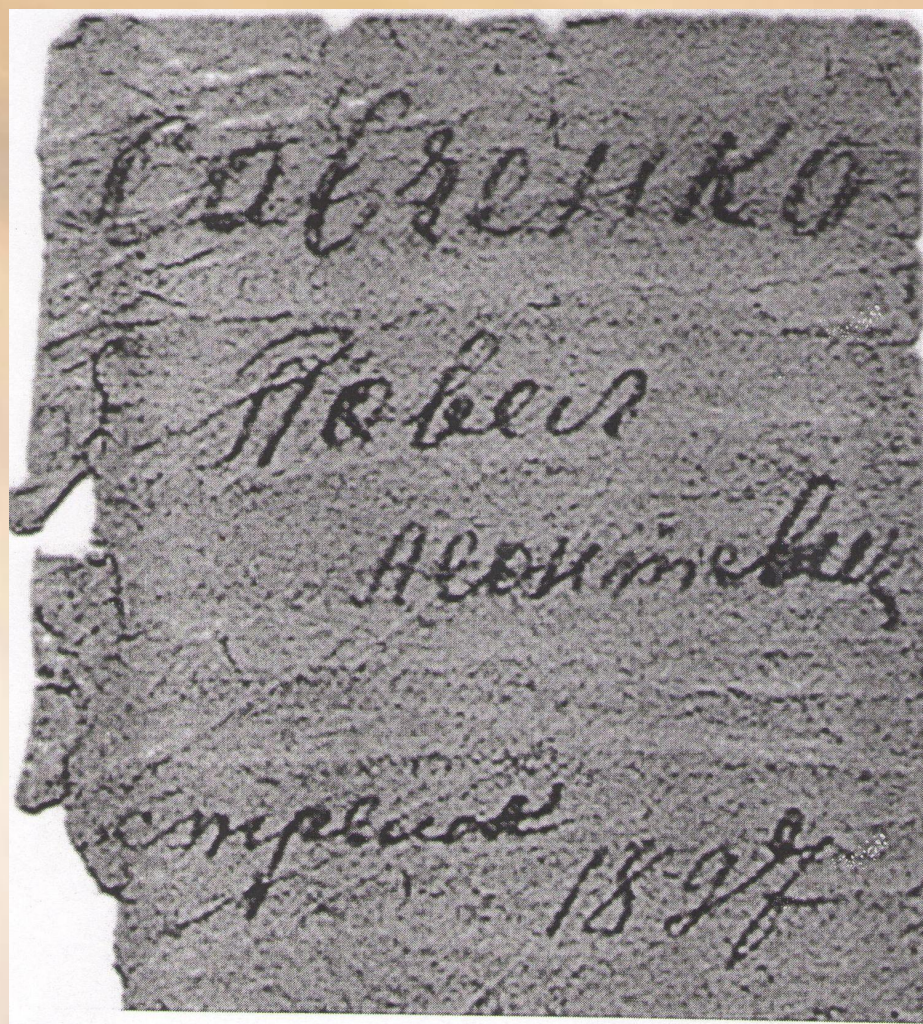 Савченко
Павел
Леонтiевич
стрелок
1897